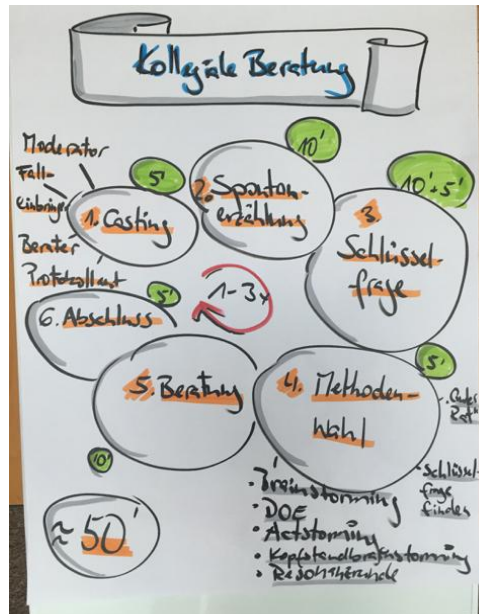 Kollegiale Beratung
Moderator
Fall-
einbringer
Berater
Protokollant
5'
1. Casting
10'
2. Spontan-
erzählung
10'+5'
3.
Schlüssel-
frage
5'
4. Methoden-
Wahl
- Guter
Rat
- Schlüssel-
frage
finden
• Brainstorming
• DOE
• Actstorming
• Kopfstandbrainstorming
• Resonanzrunde
5. Beratung
10'
5'
6. Abschluss
1-3x
≈ 50'